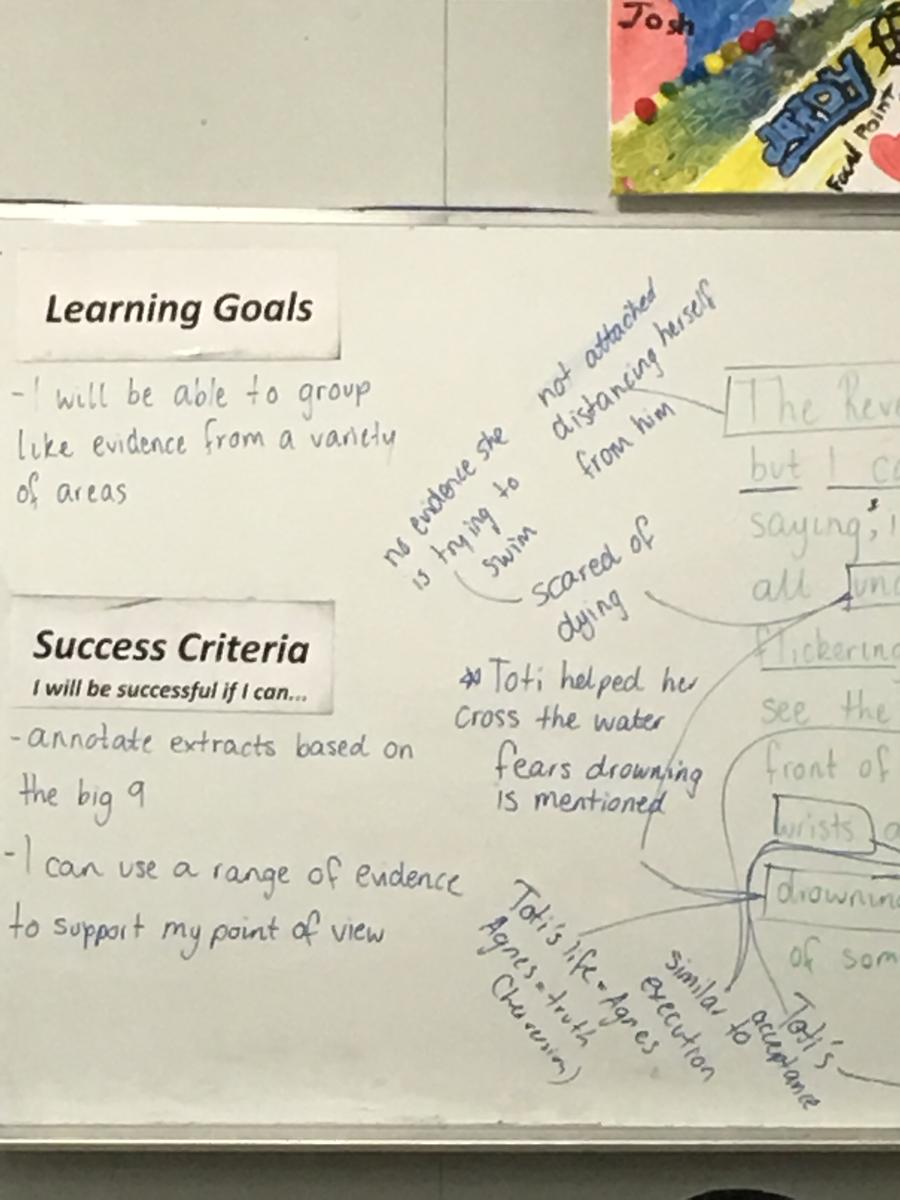 Josh
JINDY
Focal Point
Learning Goals
- I will be able to group
like evidence from a variety
of areas
Success Criteria
I will be successful if I can...
- annotate extracts based on
the big 9
- I can use a range of evidence
to support my point of view
not attached
distancing herself
from him
no evidence she
is trying to
swim
scared of
dying
* Toti helped her
cross the water
fears drowning
is mentioned
Toti's life = Agnes
Agnes = truth
(her version)
similar to
execution
Toti's
acceptance
The Reve
but I co
saying, i
all und
flickering
see the
front of
wrists a
drownin
of som